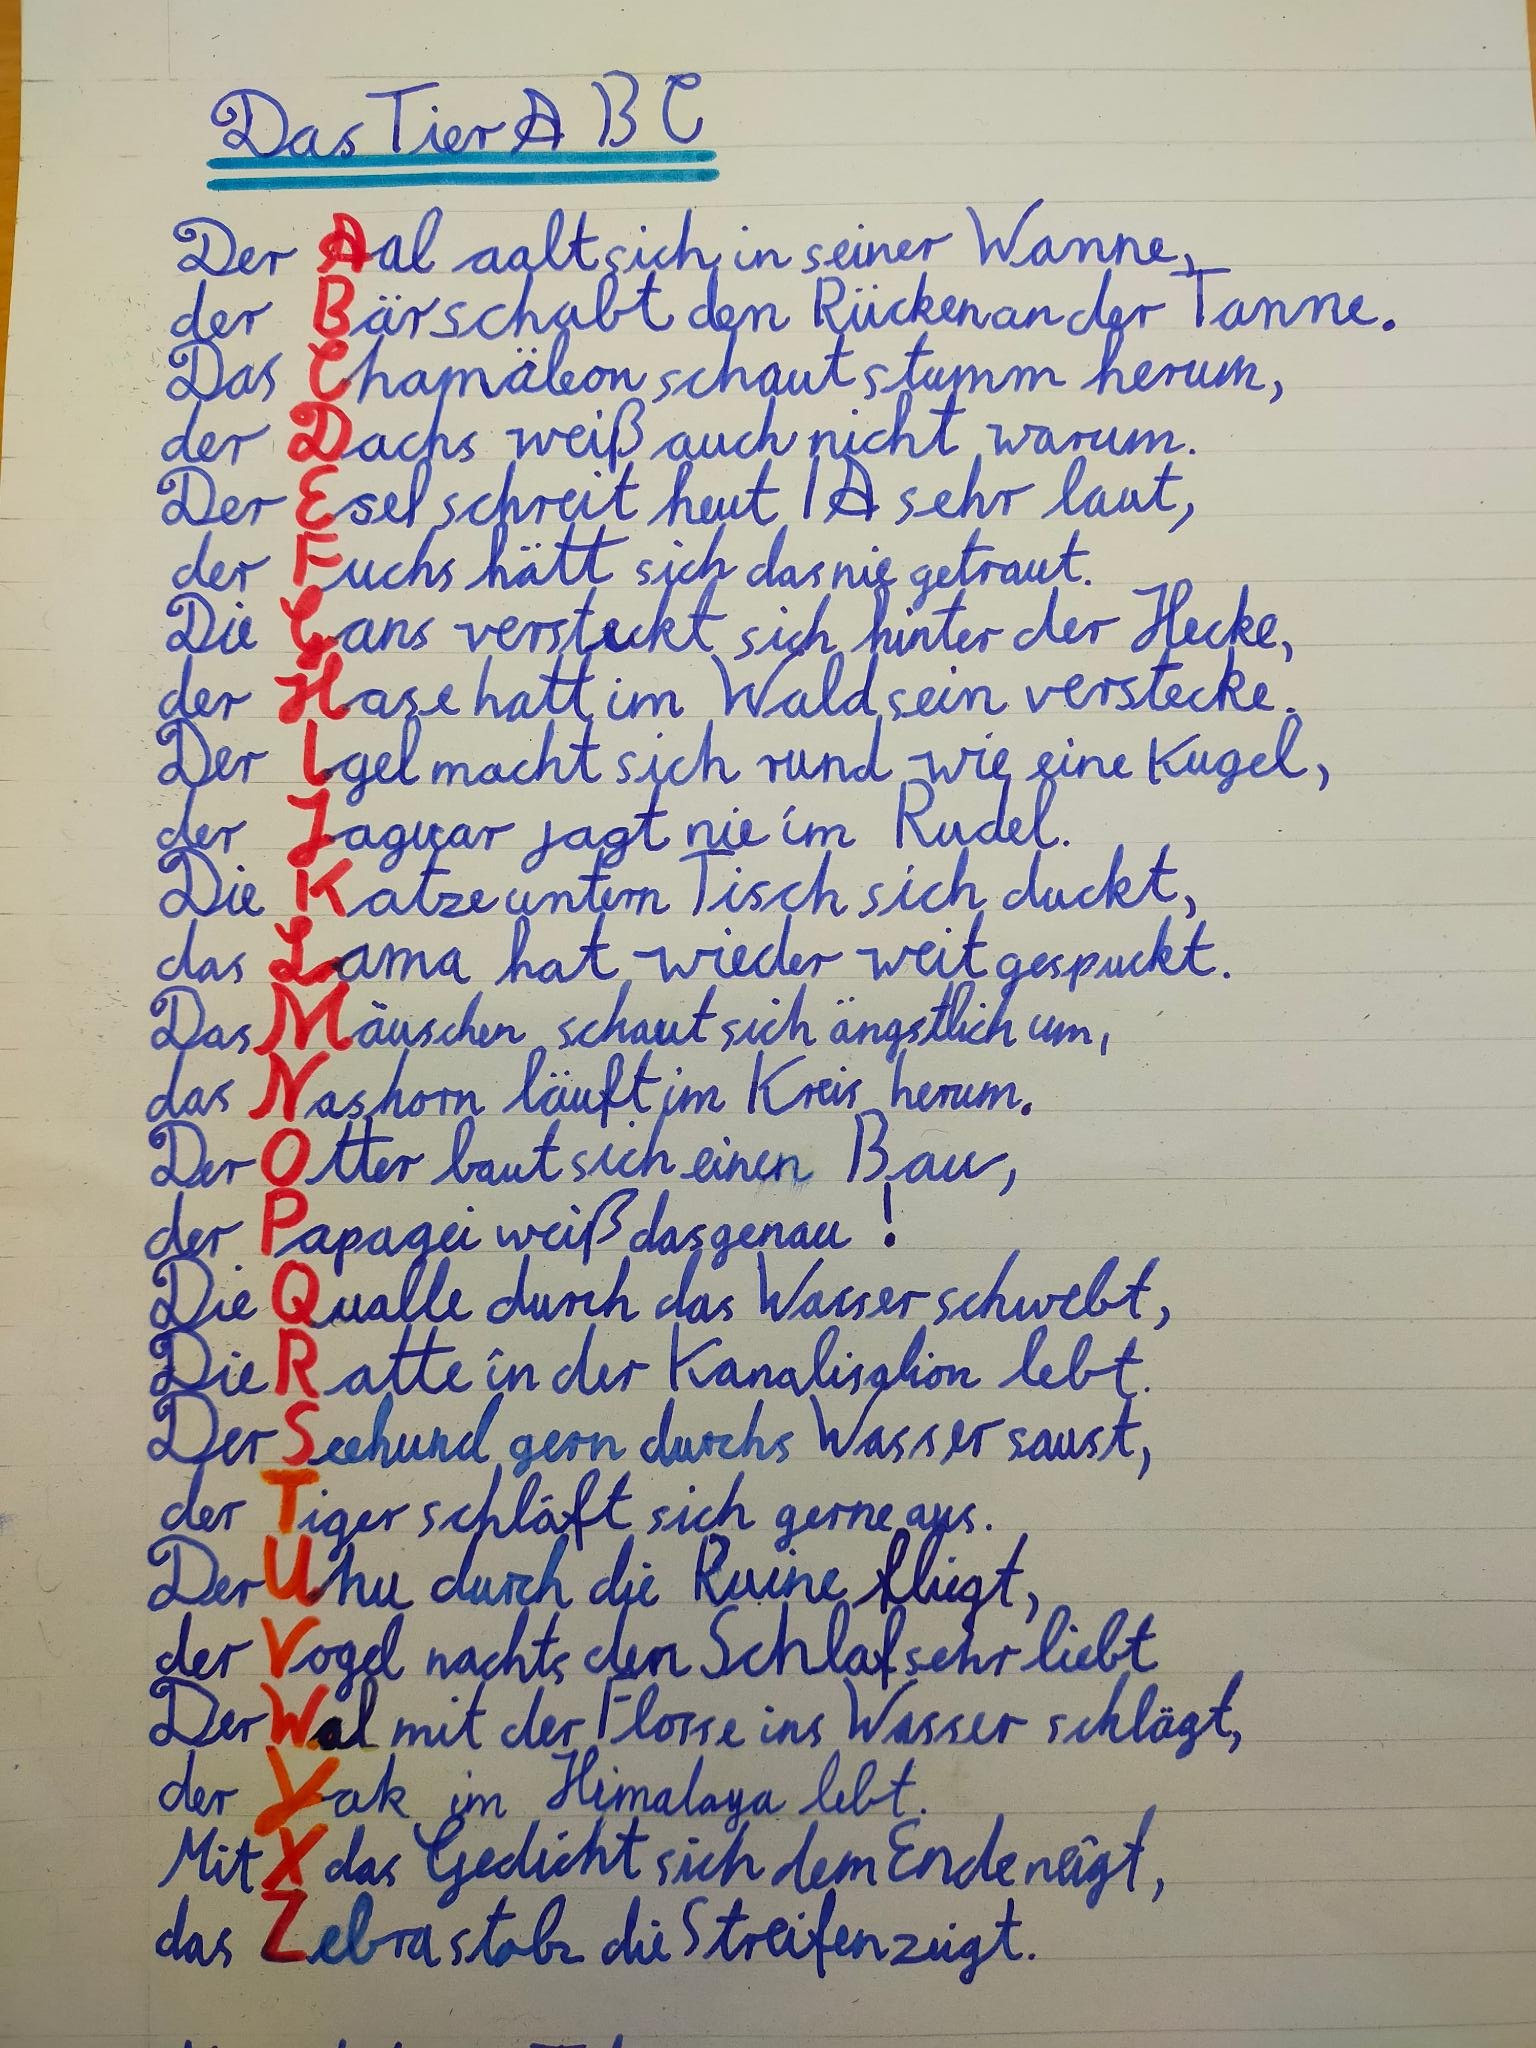 Das Tier A B C
Der Aal aalt sich in seiner Wanne,
der Bär schabt den Rücken an der Tanne.
Das Chamäleon schaut stumm herum,
der Dachs weiß auch nicht warum.
Der Esel schreit heut IA sehr laut,
der Fuchs hätt sich das nie getraut.
Die Gans versteckt sich hinter der Hecke,
der Hase hatt im Wald sein verstecke.
Der Igel macht sich rund wie eine Kugel,
der Jaguar jagt nie im Rudel.
Die Katze unterm Tisch sich duckt,
das Lama hat wieder weit gespuckt.
Das Mäuschen schaut sich ängstlich um,
das Nashorn läuft im Kreis herum.
Der Otter baut sich einen Bau,
der Papagei weiß das genau!
Die Qualle durch das Wasser schwebt,
Die Ratte in der Kanalisation lebt.
Der Seehund gern durchs Wasser saust,
der Tiger schläft sich gerne aus.
Der Uhu durch die Ruine fliegt,
der Vogel nachts den Schlaf sehr liebt
Der Wal mit der Flosse ins Wasser schlägt,
der Yak im Himalaya lebt.
Mit X das Gedicht sich dem Ende neigt,
das Zebra stolz die Streifen zeigt.